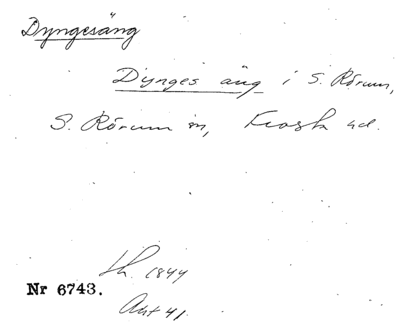 Dyngesäng
Dynges äng i S. Rörum,
S. Rörum sn, Frosta hd.
Lh. 1844
Nr 6743.
Akt 41.